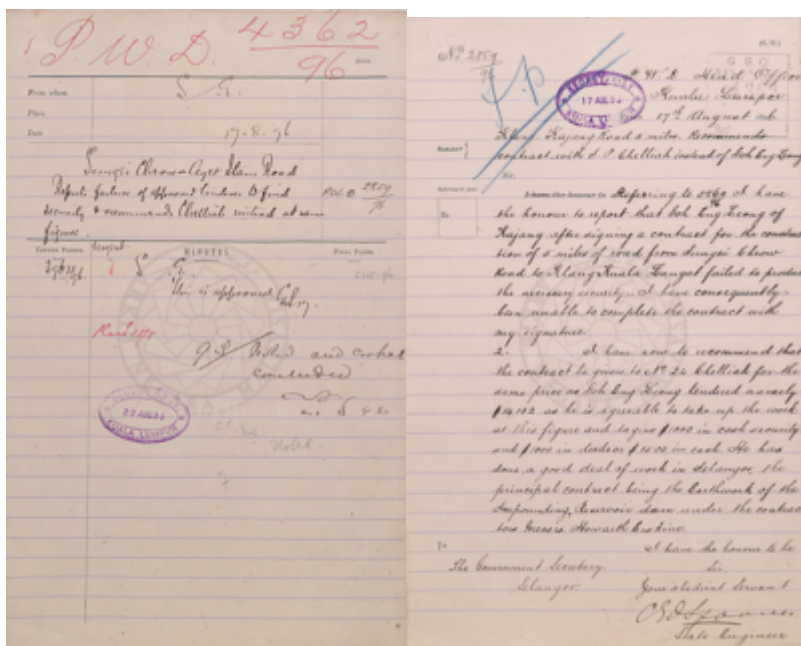 P. W. D. 4362
96
From whom S. E.
Place
Date 17-8-96
Sungei Ayer Itam Road
Reports failure of approved tenderer to find
security & recommends Chelliah instead at same
figures.
P.W.D 2859
96
MINUTES
S. E.
This is approved
Noted and contract
concluded
22 AUG 96
KUALA LUMPUR
Noted.
No 2859
96
P. W. D. Head Office
Kuala Lumpur
17th August 96
SECRETARIAT
17 AUG 96
KUALA
Klang Kajang Road 6 miles. Recommends
contract with S P Chelliah instead of Soh Eng Leong
Sir,
Referring to 2869 I have
the honour to report that Soh Eng Leong of
Kajang after signing a contract for the construc
tion of 6 miles of road from Sungei
Road to Klang Kuala Langat failed to produce
the necessary security. I have consequently
been unable to complete the contract with
my signature.
2. I have now to recommend that
the contract be given to No 26 Chelliah for the
same price as Soh Eng Leong tendered namely
as he is agreeable to take up the work
at this figure and to give $1000 in cash security
and $1000 in in cash. He has
done a good deal of work in Selangor, the
principal contract being the Earthwork of the
Impounding Reservoir dam under the contrac
tors Messrs Howarth Erskine.
I have the honour to be
Sir,
To
The Government Secretary
Selangor.
Your obedient Servant
State Engineer